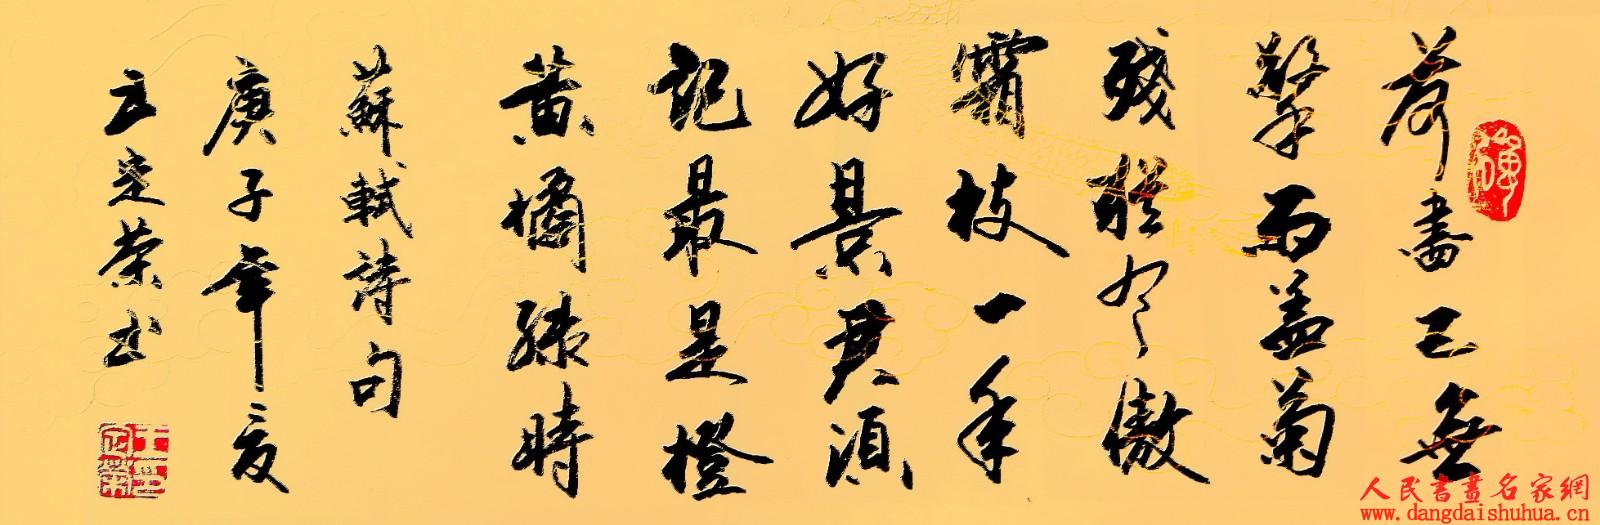 荷盡已無
擎雨盖菊
殘猶有傲
霜枝一年
好景君須
記最是橙
黄橘綠時
蘇軾詩句
庚子年夏
王定荣书
人民書畫名家網
www.dangdaishuhua.cn